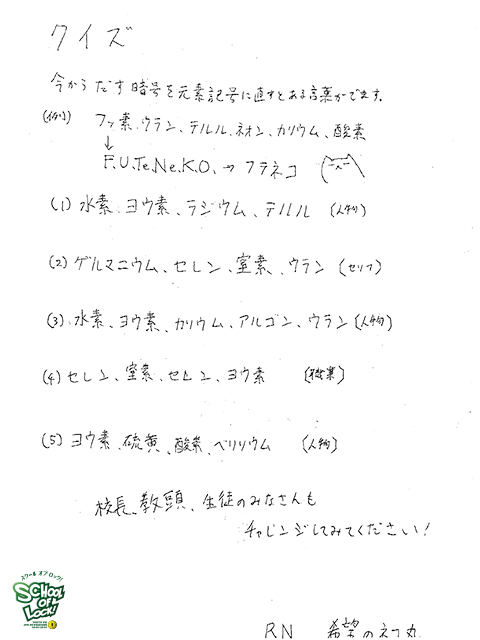 クイズ
今からだす暗号を元素記号に直すとある言葉がでます。
(例) フッ素、ウラン、テルル、ネオン、カリウム、酸素
↓
F.U.Te.Ne.K.O. → フテネコ
(1) 水素、ヨウ素、ラジウム、テルル (人物)
(2) ゲルマニウム、セレン、窒素、ウラン (セリフ)
(3) 水素、ヨウ素、カリウム、アルゴン、ウラン (人物)
(4) セレン、窒素、セレン、ヨウ素 (職業)
(5) ヨウ素、硫黄、酸素、ベリリウム (人物)
校長、教頭、生徒のみなさんも
チャレンジしてみてください!
スクール オブ ロック!
SCHOOL OF LOCK!
RN 希望のネコ丸